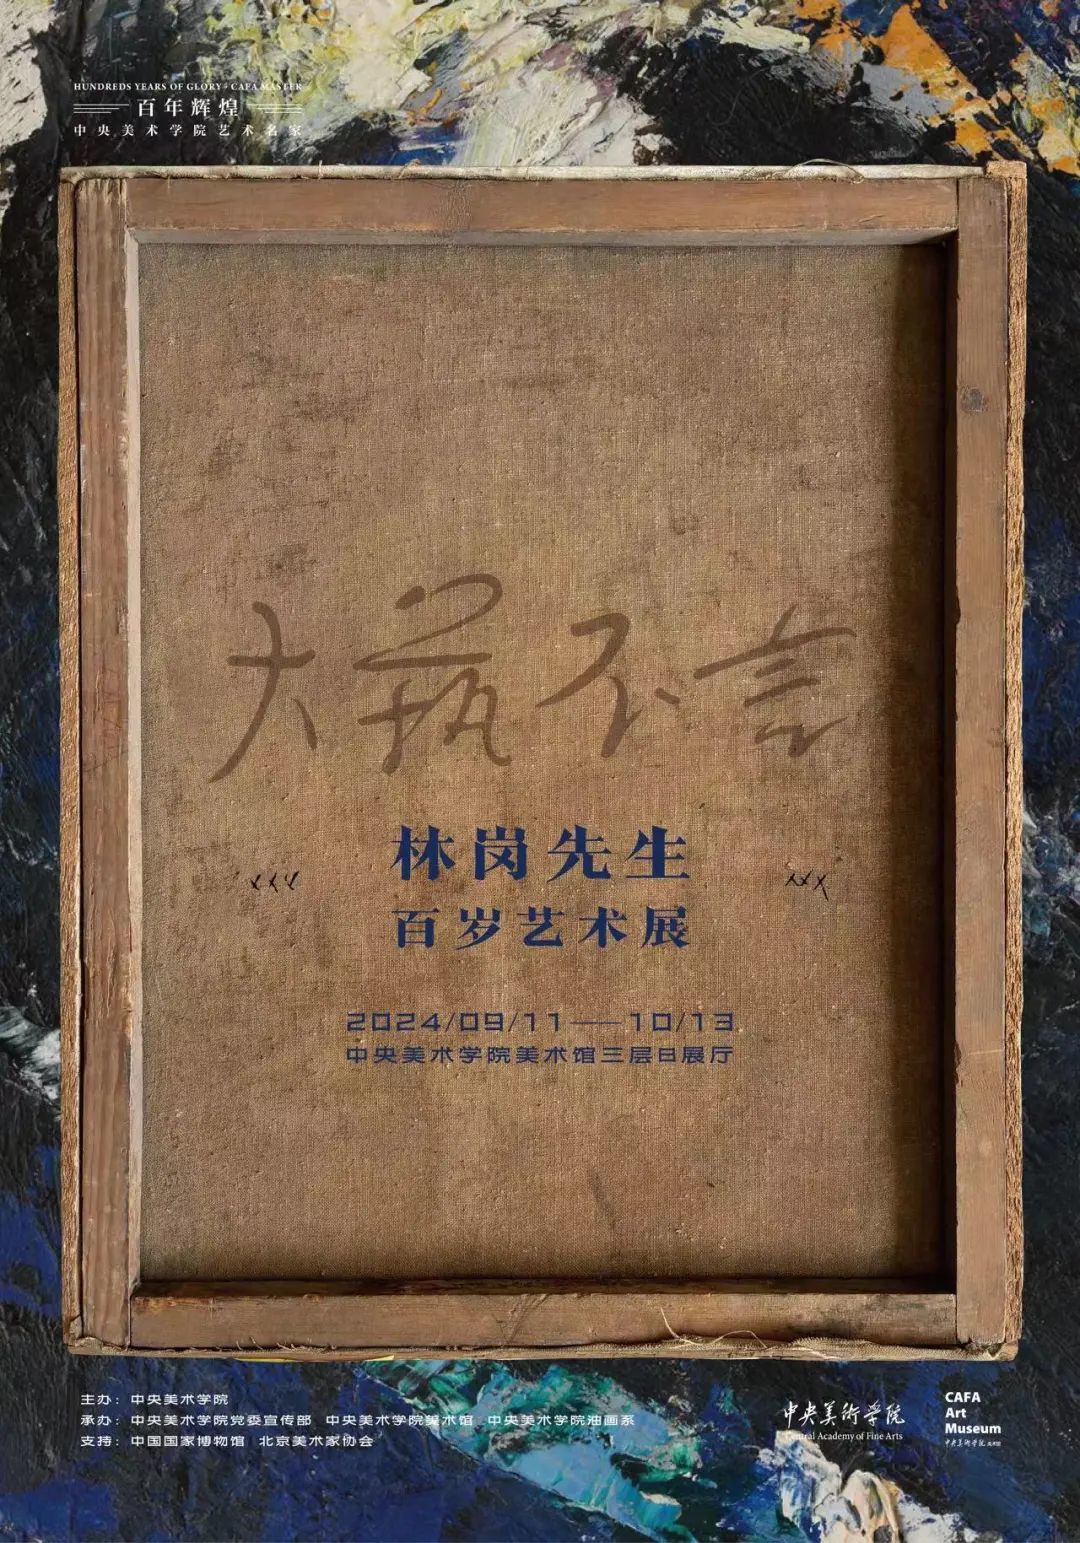 HUNDREDS YEARS OF GLORY · CAFA MASTER
百年辉煌
中央美术学院艺术名家
大艺不言
林岗先生
百岁艺术展
2024/09/11——10/13
中央美术学院美术馆三层B展厅
主办：中央美术学院
承办：中央美术学院党委宣传部 中央美术学院美术馆 中央美术学院油画系
支持：中国国家博物馆 北京美术家协会
中央美術学院
Central Academy of Fine Arts
CAFA
Art
Museum
中央美術学院美术馆